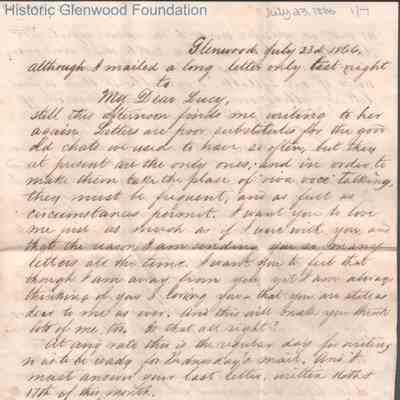 Historic Glenwood Foundation
July 23, 1866 1/7
Glenwood July 23d 1866.
Although I mailed a long letter only last night
to
My Dear Lucy,
still this afternoon finds me writing to her
again. Letters are poor substitutes for the good
old chats we used to have so often, but they
at present are the only ones, and in order to
make them take the place of "viva voce" talking,
they must be frequent, and as full as
circumstances permit. I want you to love
me just as much as if I were with you and
that the reason I am sending you so many
letters all the time. I want you to feel that
though I am away from you yet I am always
thinking of you & loving you & that you are still as
dear to me as ever. And this will make you think
lots of me, too. Is that all right?
At any rate this is the regular day for writing
so as to be ready for Wednesday's mail. And I
must answer your last letter, written
17th of this month.